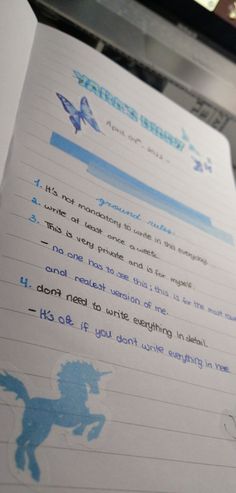 April 2022
ground rules
1. It's not mandatory to write in this everyday.
2. write at least once a week.
3. This is very private and is for myself.
- no one has to see this; this is for the most
and realest version of me.
4. don't need to write everything in detail.
- It's ok if you don't write everything in here.